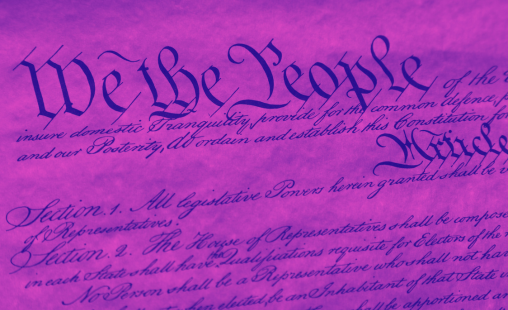 We the People of the
insure domestic Tranquility, provide for the common defence,
and our Posterity, do ordain and establish this Constitution for
Article
Section. 1. All legislative Powers herein granted shall be
of Representatives.
Section. 2. The House of Representatives shall be compose
in each State shall have the Qualifications requisite for Electors of the
No Person shall be a Representative who shall not ha
when elected, be an Inhabitant of that State
shall be apportioned